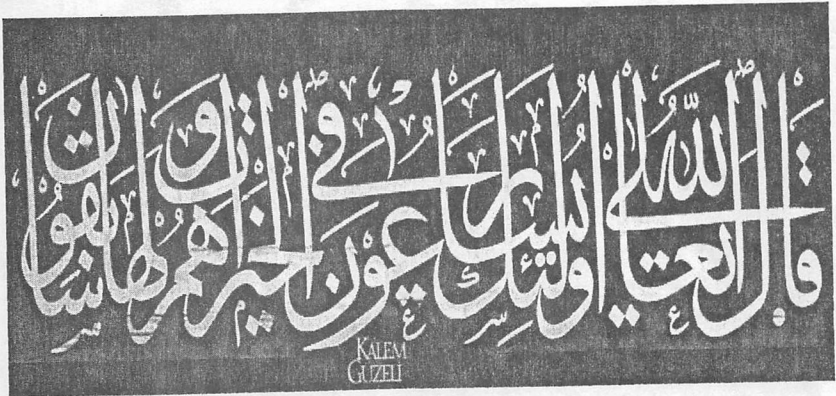 قال الله تعالى اولئك يسارعون في الخيرات وهم لها سابقون
KALEM
GUZELI